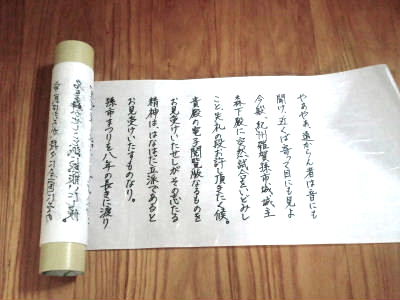 やあやあ、遠からん者は音にも
聞け、近くば寄って目にも見よ
今般、紀州雑賀孫市城城主
森下殿に突然試合をいどみし
こと、失礼の段お許し頂きたく候。
貴殿の電子閲覧版なるものを
お見受けいたせしがその心たる
精神は、はなはだ立派であると
お見受けいたすものなり。
孫市まつりを八年の長きに渡り